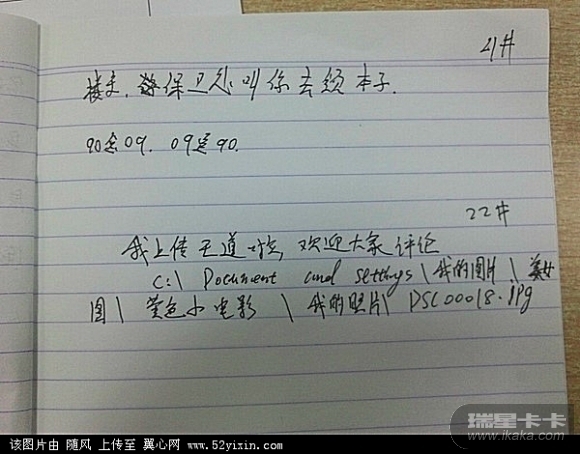 21#
楼主,保卫处叫你去领本子.
90后09. 09是90.
22#
我上传 王道 欢迎大家评论
C:\ Document and settings \ 我的图片 \ 美女
图 \ 黄色小电影 \ 我的照片\ DSC00018.jpg
瑞星卡卡
www.ikaka.com
该图片由 随风 上传至 翼心网 www.52yixin.com